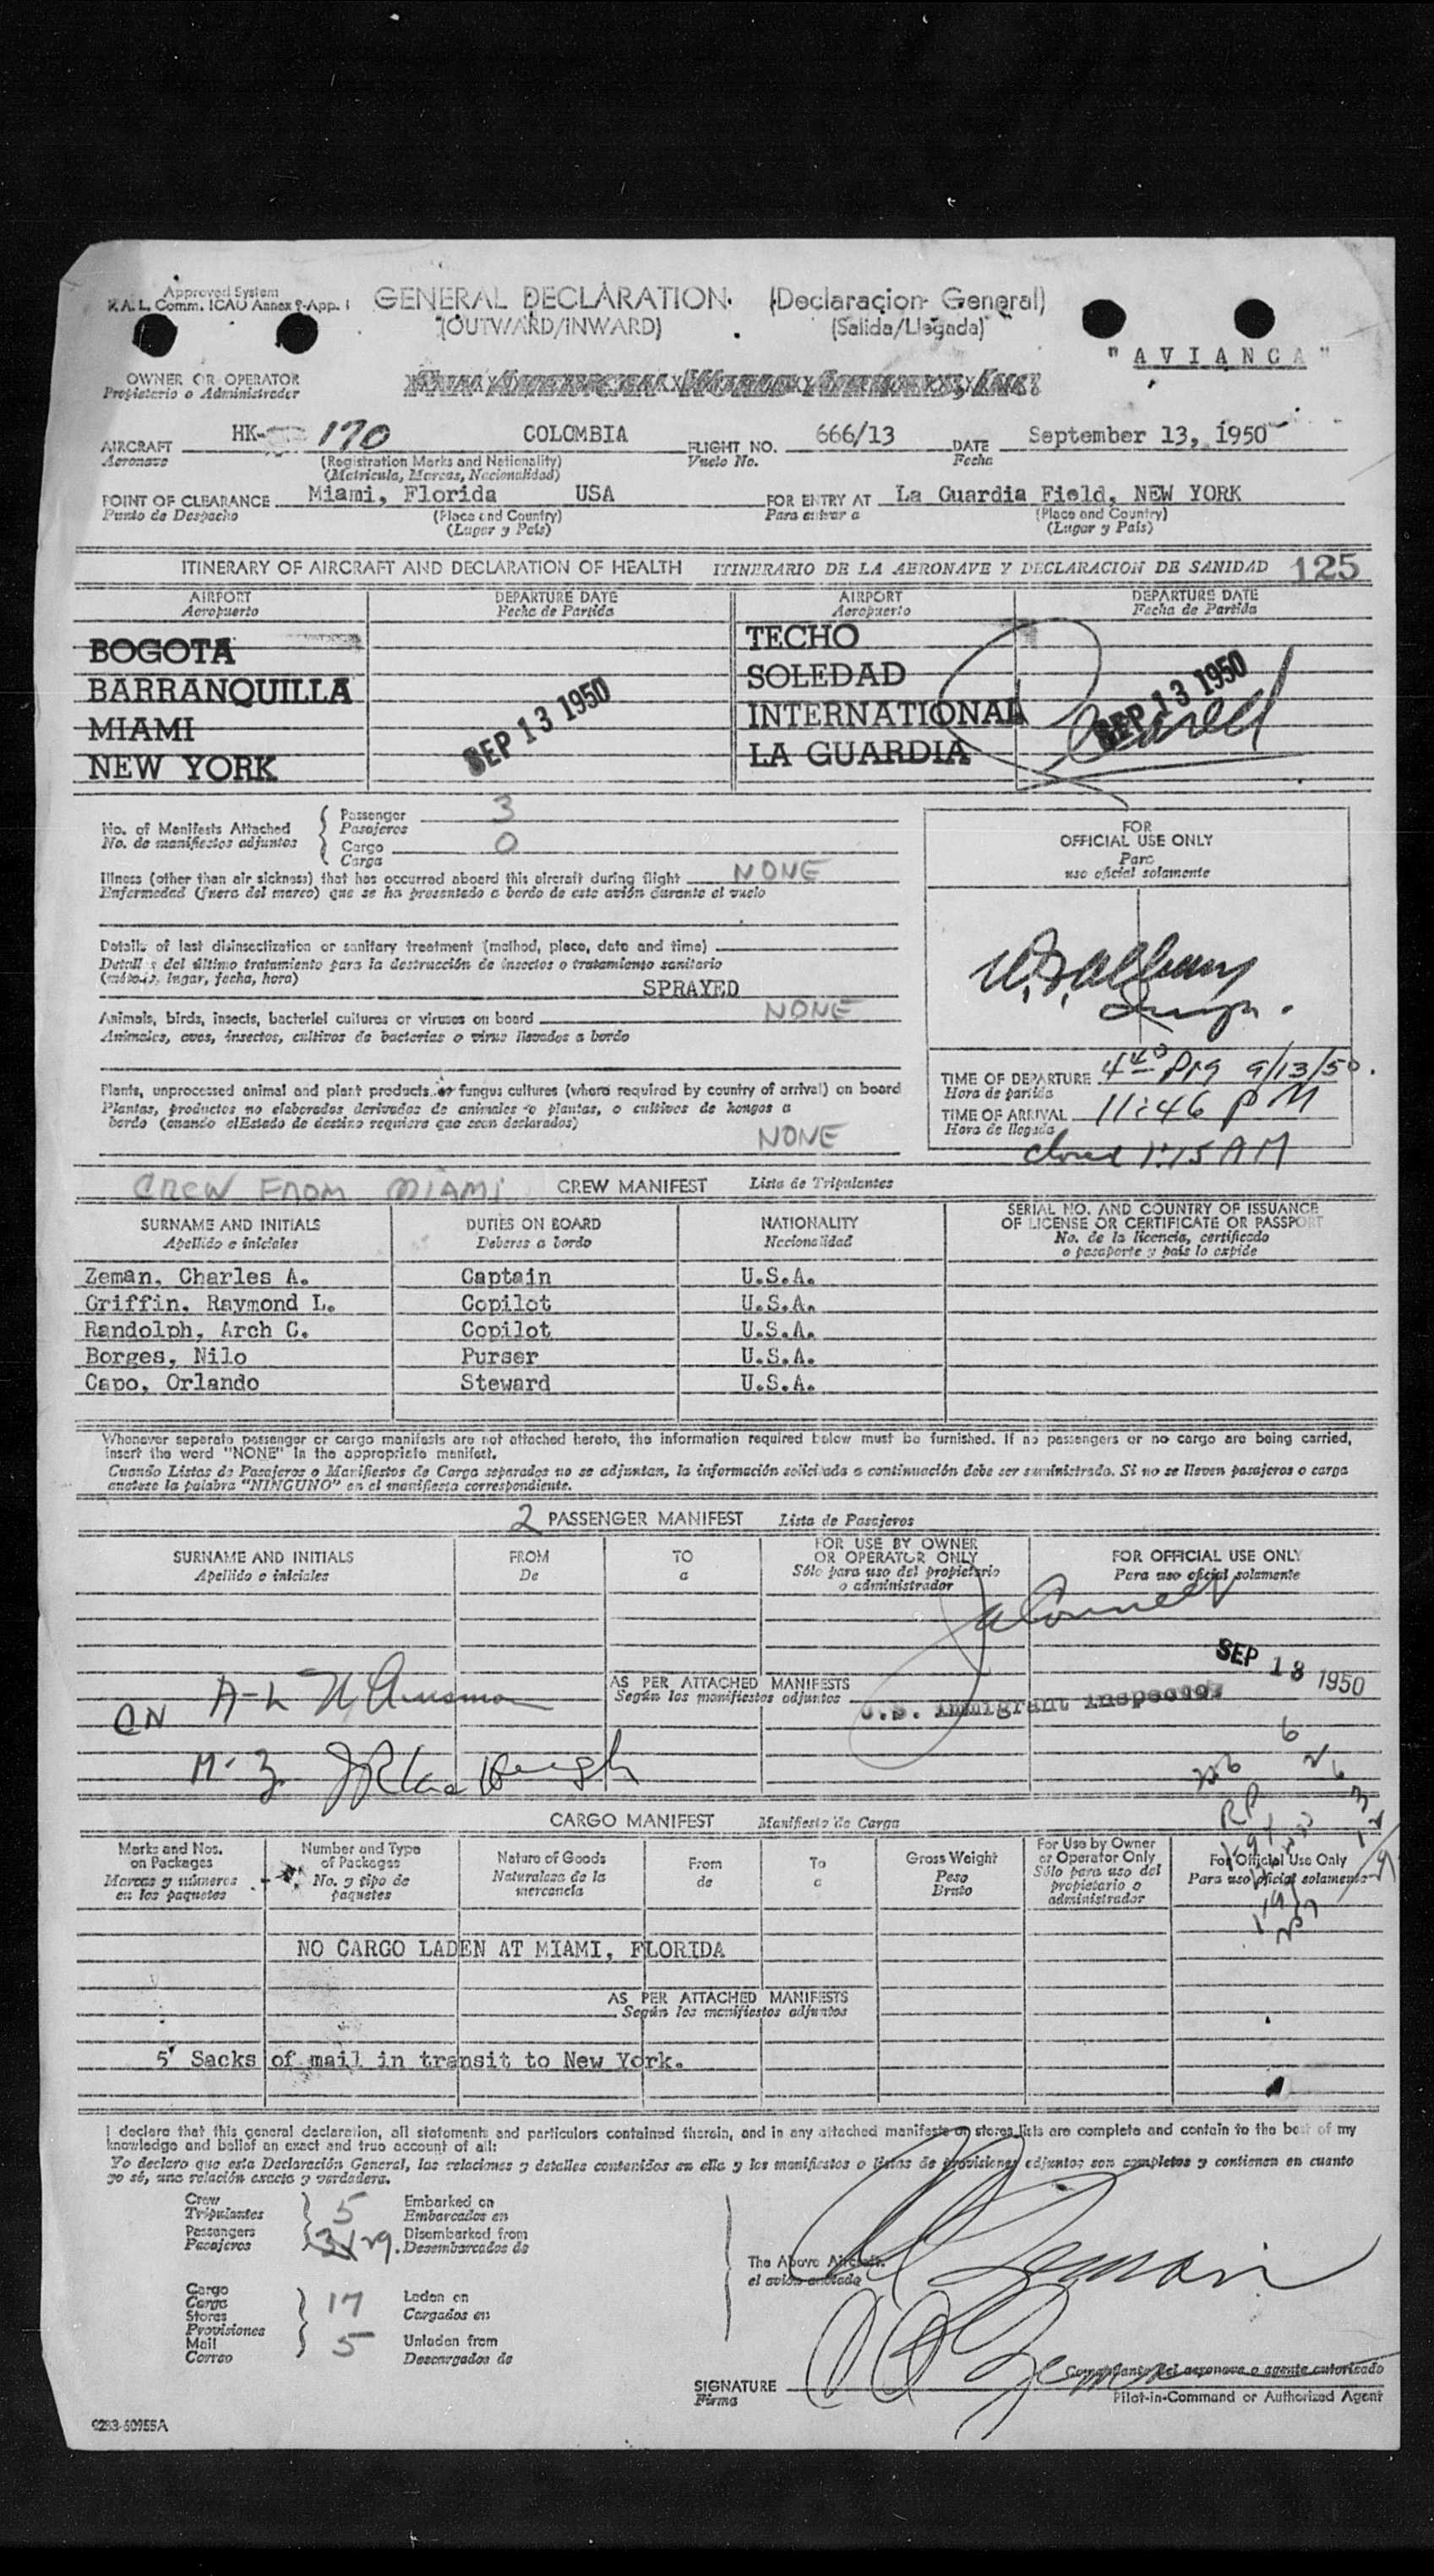 Approved System
F.A.L. Comm. ICAO Annex 9-App. 1
GENERAL DECLARATION (Declaracion General)
(OUTWARD/INWARD) (Salida/Llegada)
"AVIANCA"
OWNER OR OPERATOR
Propietario o Administrador
AIRCRAFT HK- 170 COLOMBIA FLIGHT NO. 666/13 DATE September 13, 1950
Aeronave (Registration Marks and Nationality) Vuelo No. Fecha
(Matricula, Marcas, Nacionalidad)
POINT OF CLEARANCE Miami, Florida USA FOR ENTRY AT La Guardia Field, NEW YORK
Punto de Despacho (Place and Country) Para entrar a (Place and Country)
(Lugar y País) (Lugar y País)
ITINERARY OF AIRCRAFT AND DECLARATION OF HEALTH ITINERARIO DE LA AERONAVE Y DECLARACION DE SANIDAD 125
AIRPORT DEPARTURE DATE AIRPORT DEPARTURE DATE
Aeropuerto Fecha de Partida Aeropuerto Fecha de Partida
BOGOTA TECHO
BARRANQUILLA SOLEDAD
MIAMI SEP 13 1950 INTERNATIONAL SEP 13 1950
NEW YORK LA GUARDIA
No. of Manifests Attached Passenger 3
No. de manifiestos adjuntos Pasajeros
Cargo 0
Carga
FOR
OFFICIAL USE ONLY
Para
uso oficial solamente
Illness (other than air sickness) that has occurred aboard this aircraft during flight NONE
Enfermedad (fuera del mareo) que se ha presentado a bordo de este avión durante el vuelo
Details of last disinsectization or sanitary treatment (method, place, date and time)
Detalles del último tratamiento para la destrucción de insectos o tratamiento sanitario
(método, lugar, fecha, hora)
SPRAYED
Animals, birds, insects, bacterial cultures or viruses on board NONE
Animales, aves, insectos, cultivos de bacterias o virus llevados a bordo
Plants, unprocessed animal and plant products or fungus cultures (where required by country of arrival) on board
Plantas, productos no elaborados derivados de animales o plantas, o cultivos de hongos a
bordo (cuando el Estado de destino requiera que sean declarados)
NONE
TIME OF DEPARTURE 9/13/50.
Hora de partida
TIME OF ARRIVAL 11:46 PM
Hora de llegada
closed 1:15 AM
CREW FROM MIAMI CREW MANIFEST Lista de Tripulantes
SURNAME AND INITIALS DUTIES ON BOARD NATIONALITY SERIAL NO. AND COUNTRY OF ISSUANCE
OF LICENSE OR CERTIFICATE OR PASSPORT
Apellido e iniciales Deberes a bordo Nacionalidad No. de la licencia, certificado
o pasaporte y país lo expide
Zeman, Charles A. Captain U.S.A.
Griffin, Raymond L. Copilot U.S.A.
Randolph, Arch C. Copilot U.S.A.
Borges, Nilo Purser U.S.A.
Capo, Orlando Steward U.S.A.
Whenever separate passenger or cargo manifests are not attached hereto, the information required below must be furnished. If no passengers or no cargo are being carried,
insert the word "NONE" in the appropriate manifest.
Cuando Listas de Pasajeros o Manifiestos de Carga separados no se adjuntan, la información solicitada a continuación debe ser suministrada. Si no se lleven pasajeros o carga
anotese la palabra "NINGUNO" en el manifiesto correspondiente.
2 PASSENGER MANIFEST Lista de Pasajeros
SURNAME AND INITIALS FROM TO FOR USE BY OWNER
OR OPERATOR ONLY FOR OFFICIAL USE ONLY
Apellido e iniciales De a Sólo para uso del propietario
o administrador Para uso oficial solamente
SEP 13 1950
AS PER ATTACHED MANIFESTS
Según los manifiestos adjuntos
U.S. Immigrant Inspector
CARGO MANIFEST Manifiesto de Carga
Marks and Nos.
on Packages
Marcas y números
en los paquetes
Number and Type
of Packages
No. y tipo de
paquetes
Nature of Goods
Naturaleza de la
mercancía
From
de
To
a
Gross Weight
Peso
Bruto
For Use by Owner
or Operator Only
Sólo para uso del
propietario o
administrador
For Official Use Only
Para uso oficial solamente
NO CARGO LADEN AT MIAMI, FLORIDA
AS PER ATTACHED MANIFESTS
Según los manifiestos adjuntos
5 Sacks of mail in transit to New York.
I declare that this general declaration, all statements and particulars contained therein, and in any attached manifests or stores lists are complete and contain to the best of my
knowledge and belief an exact and true account of all:
Yo declaro que esta Declaración General, las relaciones y detalles contenidos en ella y los manifiestos o listas de provisiones adjuntos son completos y contienen en cuanto
yo sé, una relación exacta y verdadera.
Crew 5 Embarked on
Tripulantes Embarcados en
Passengers 29. Disembarked from
Pasajeros Desembarcados de
The Above Aircraft.
el avión anotado
Cargo
Carga 17 Laden on
Stores Cargados en
Provisiones
Mail 5 Unladen from
Correo Descargados de
Comandante del aeronave o agente autorizado
SIGNATURE
Firma
Pilot-in-Command or Authorized Agent
9283-50955A